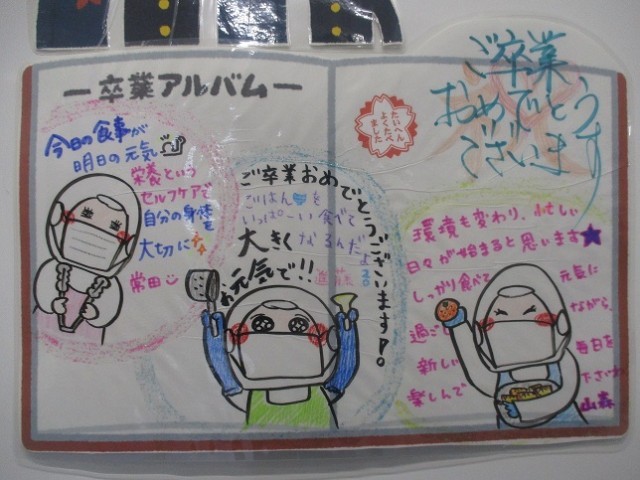 ー卒業アルバムー
今日の食事が
明日の元気
栄養という
セルフケアで
自分の身体を
大切に
常田
ご卒業おめでとうございます!。
ごはんを
いっぱーい食べて
大きくなるんだよ
お元気で!!
進藤
たいへん
よくたべ
ました
ご卒業
おめでとう
ございます
環境も変わり、忙しい
日々が始まると思います★
しっかり食べて 元気に
過ごしながら、
新しい毎日を
楽しんで下さいね
山森